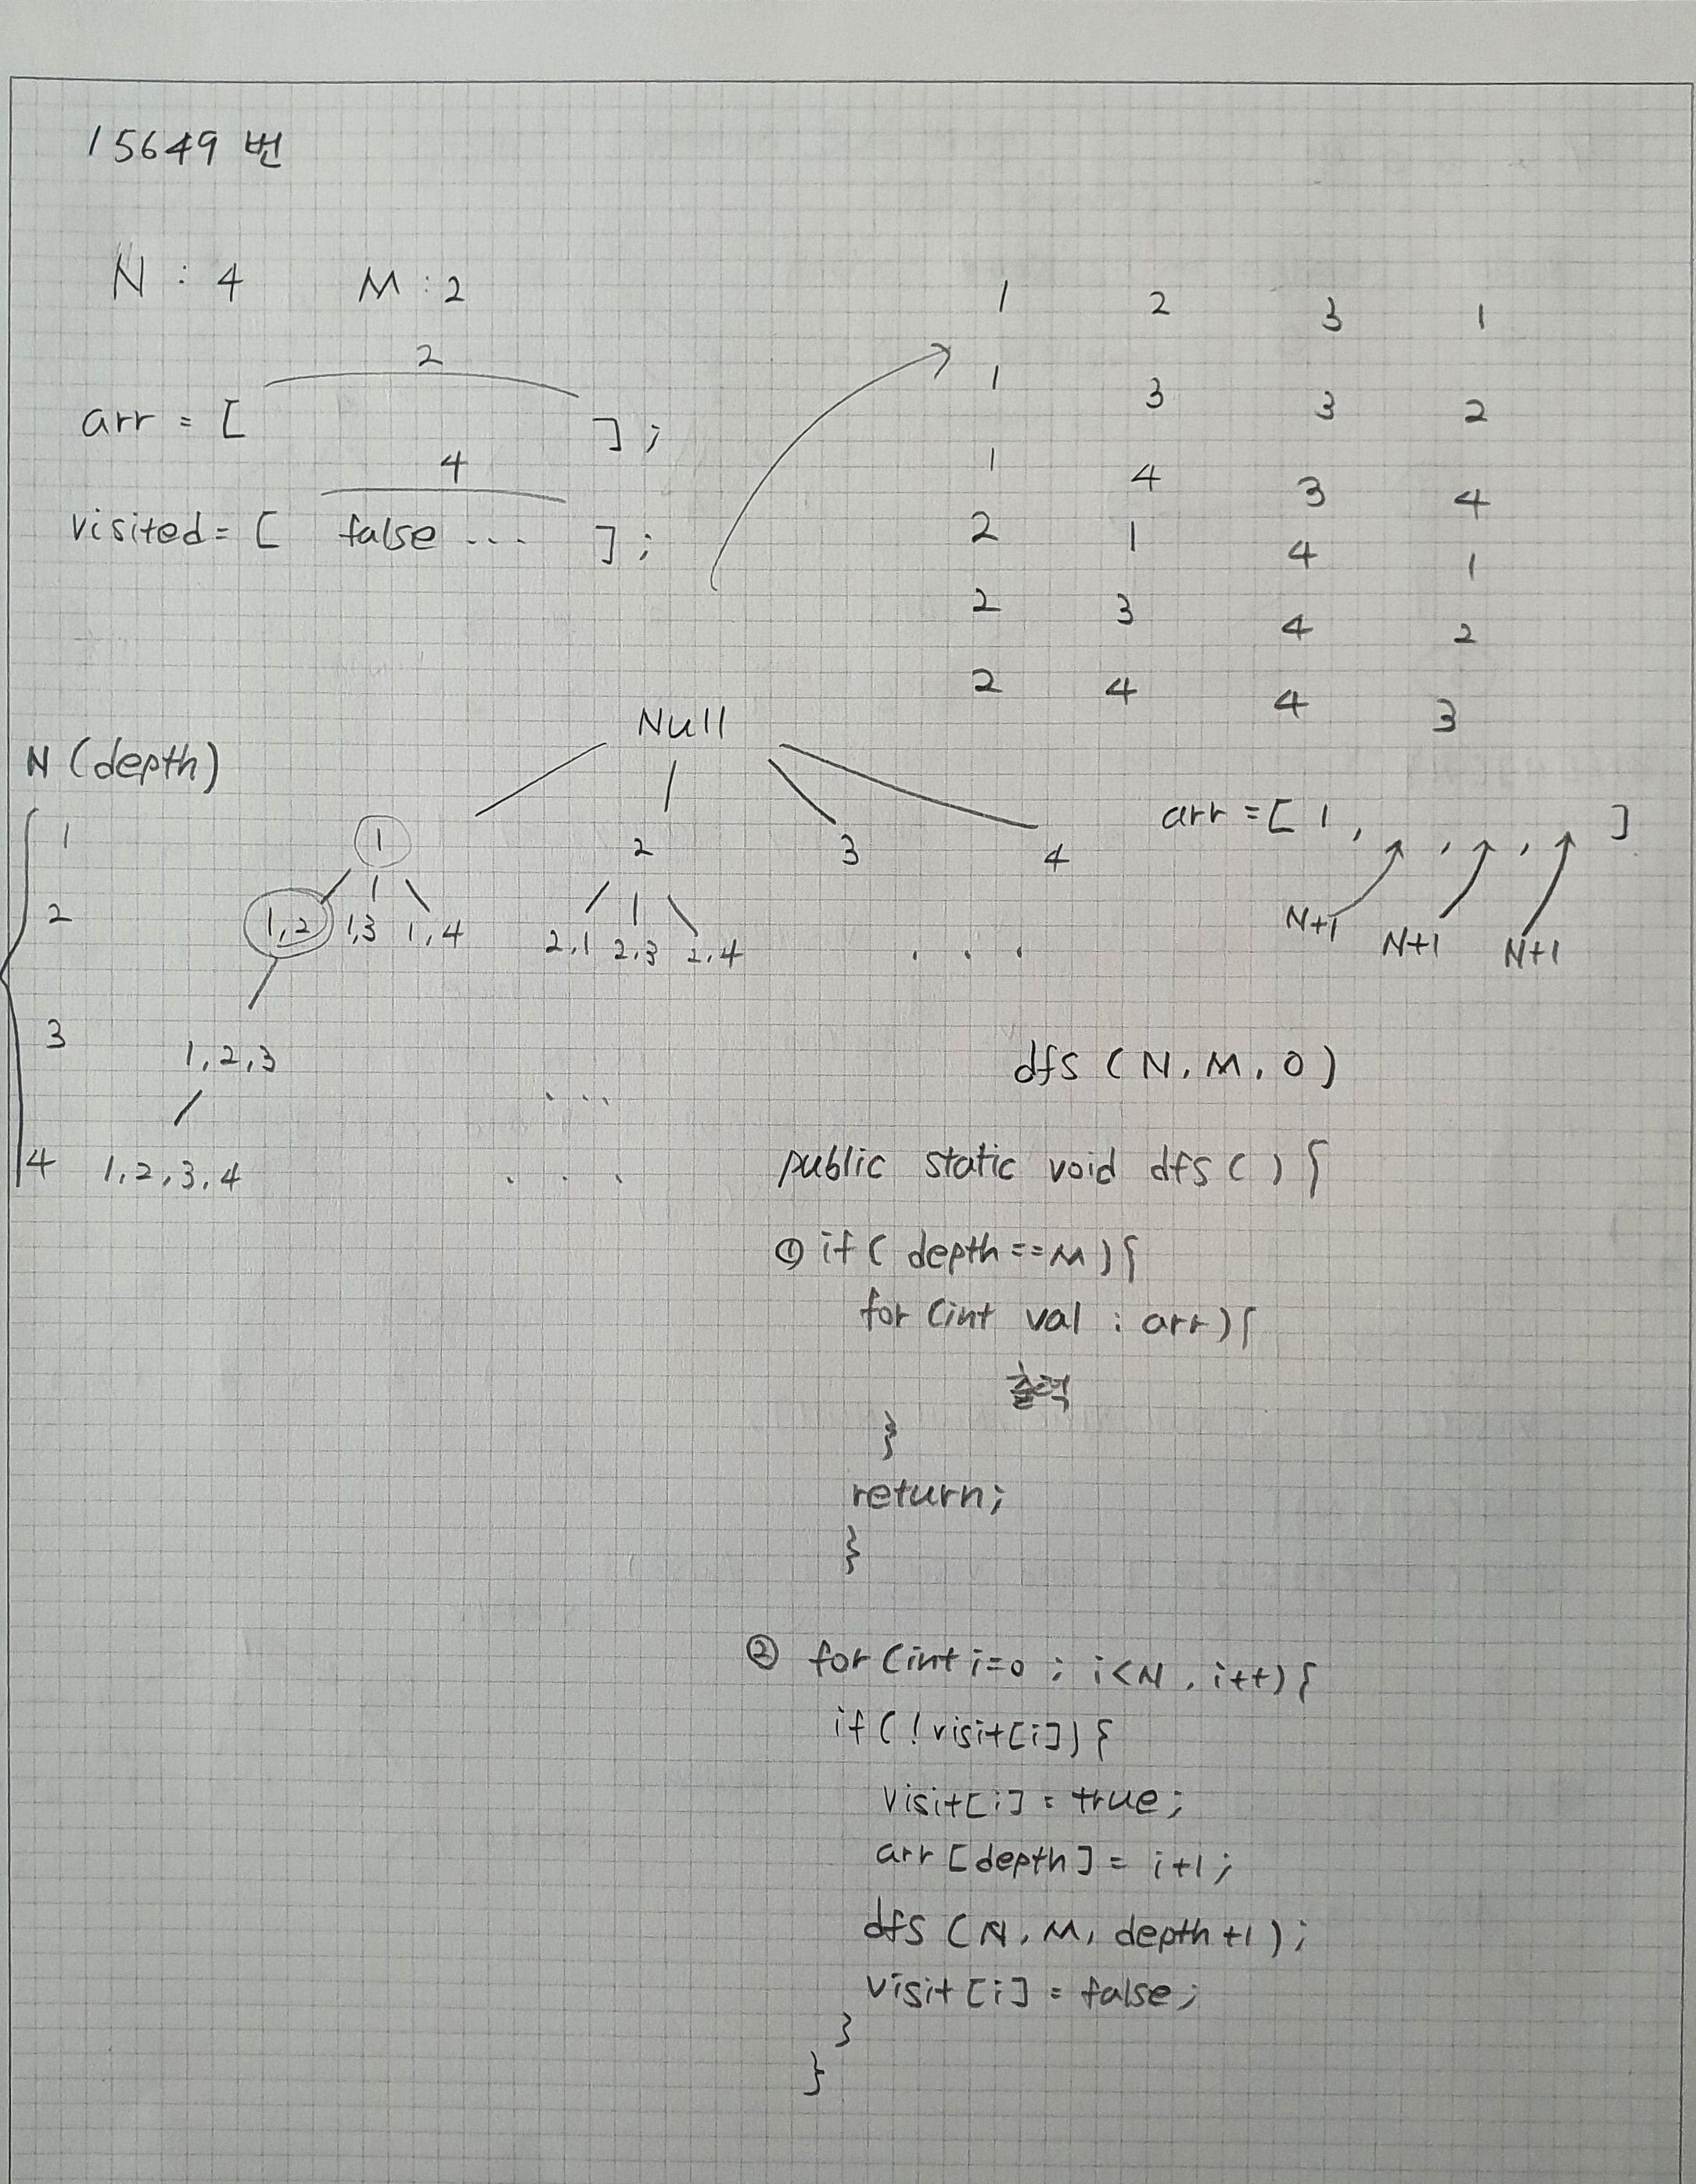 15649 번
N : 4 M : 2
2
arr = [ ] ;
4
visited = [ false ... ] ;
1 2 3 1
1 3 3 2
1 4 3 4
2 1 4 1
2 3 4 2
2 4 4 3
Null
N (depth)
1 1 2 3 4
2 1,2 1,3 1,4 2,1 2,3 2,4 . . .
3 1,2,3 ....
4 1,2,3,4 . . .
arr = [ 1 , , , ]
N+1 N+1 N+1
dfs ( N, M, 0 )
public static void dfs ( ) {
① if ( depth == M ) {
for (int val : arr) {
출력
}
return;
}
② for (int i=0 ; i<N , i++) {
if ( ! visit[i]) {
visit[i] = true;
arr [depth] = i+1;
dfs (N, M, depth +1 );
visit [i] = false;
}
}